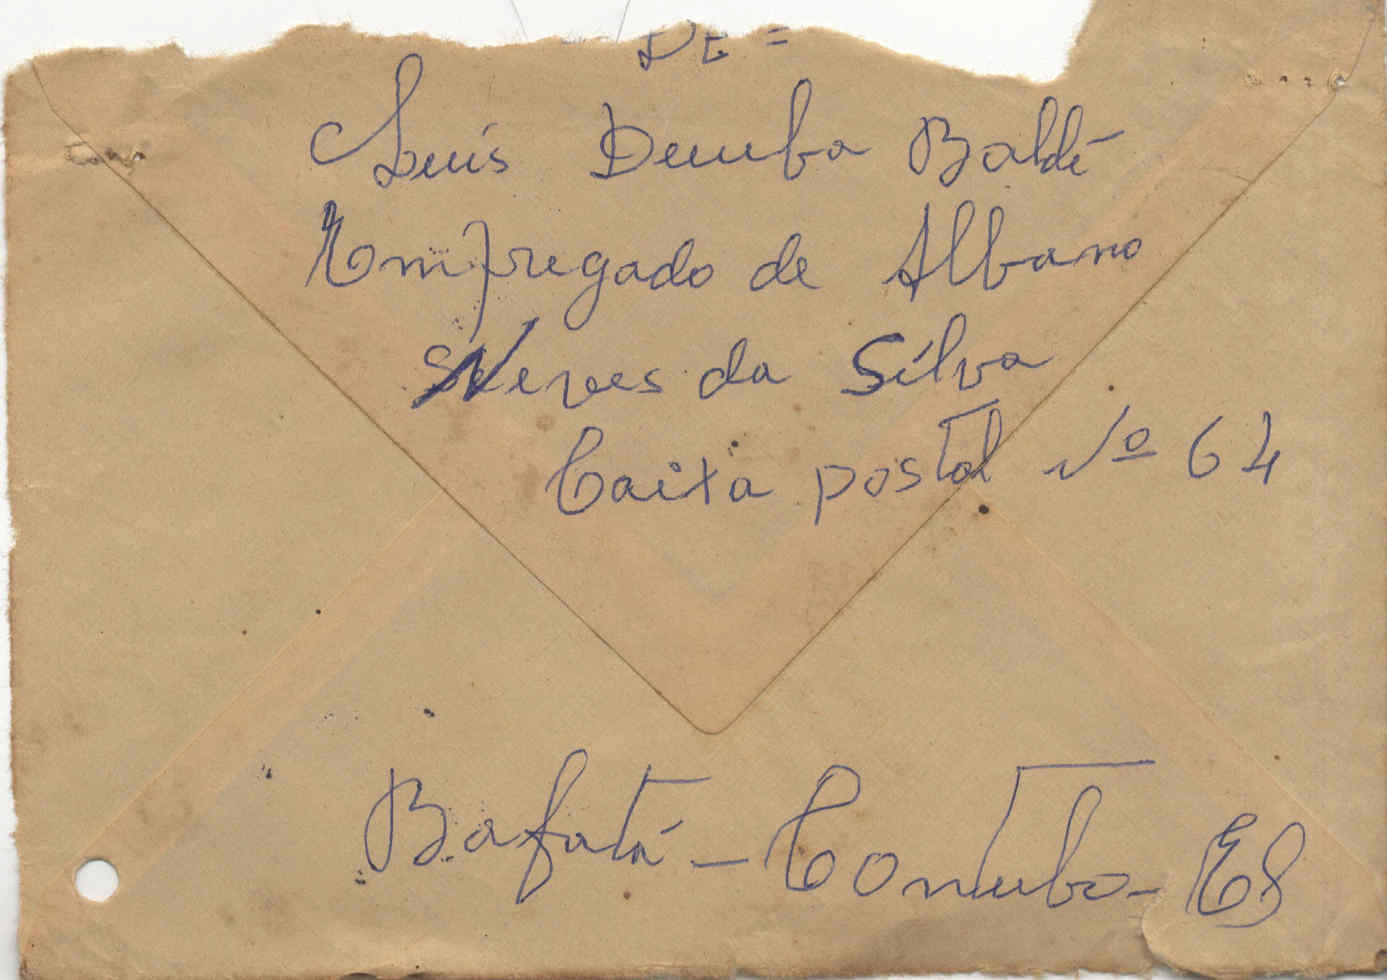 DE =
Luis Demba Baldé
Empregado de Albano
Neves da Silva
Caixa postal Nº 64
Bafatá - Contubo -